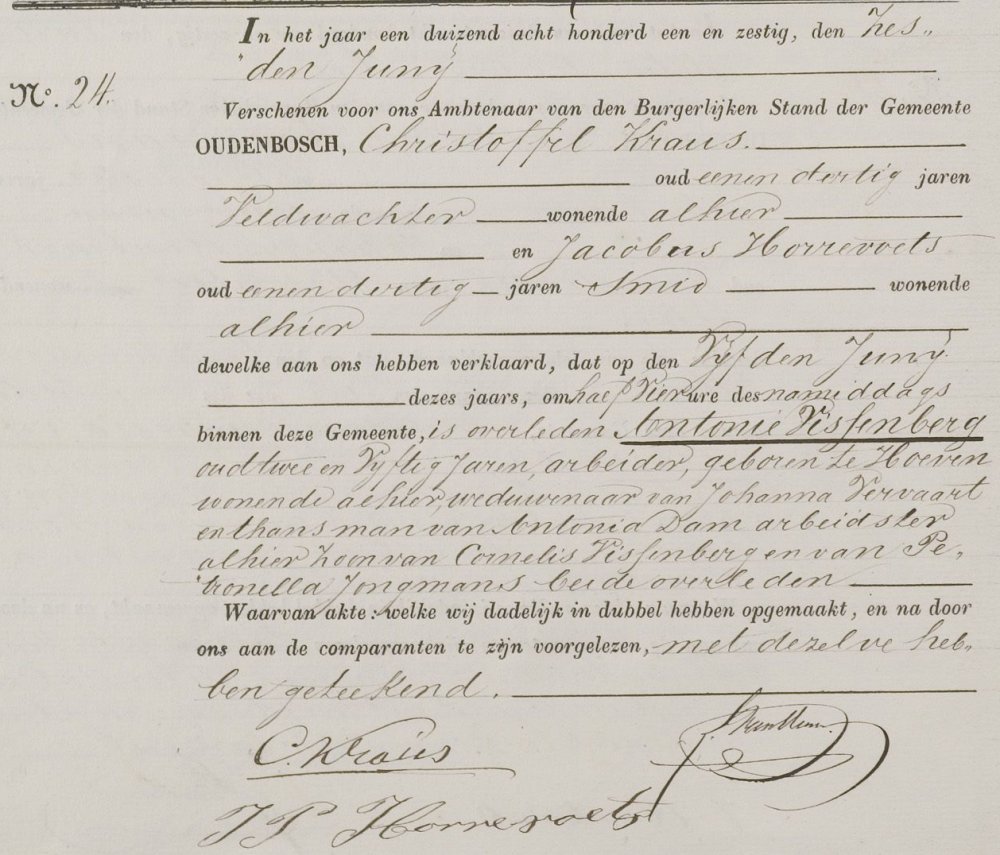 In het jaar een duizend acht honderd een en zestig, den Zes„
„den Junÿ
No. 24.
Verschenen voor ons Ambtenaar van den Burgerlijken Stand der Gemeente
OUDENBOSCH, Christoffel Kraus.
oud eenen dertig jaren
Veldwachter wonende alhier
en Jacobus Horrevoets
oud eenen dertig jaren Smid wonende
alhier
dewelke aan ons hebben verklaard, dat op den Vyfden Junÿ
dezes jaars, om half Vier ure des namiddags
binnen deze Gemeente, is overleden Antonie Vissenberg
oud twee en Vyftig Jaren, arbeider, geboren te Hoeven
wonende alhier, weduwenaar van Johanna Vervaart
en thans man van Antonia Dam arbeidster
alhier Zoon van Cornelis Vissenberg en van Pe„
„tronella Jongmans beide overleden
Waarvan akte: welke wij dadelijk in dubbel hebben opgemaakt, en na door
ons aan de comparanten te zijn voorgelezen, met dezelve heb„
ben geteekend.
C. Kraus
J P Horrevoets